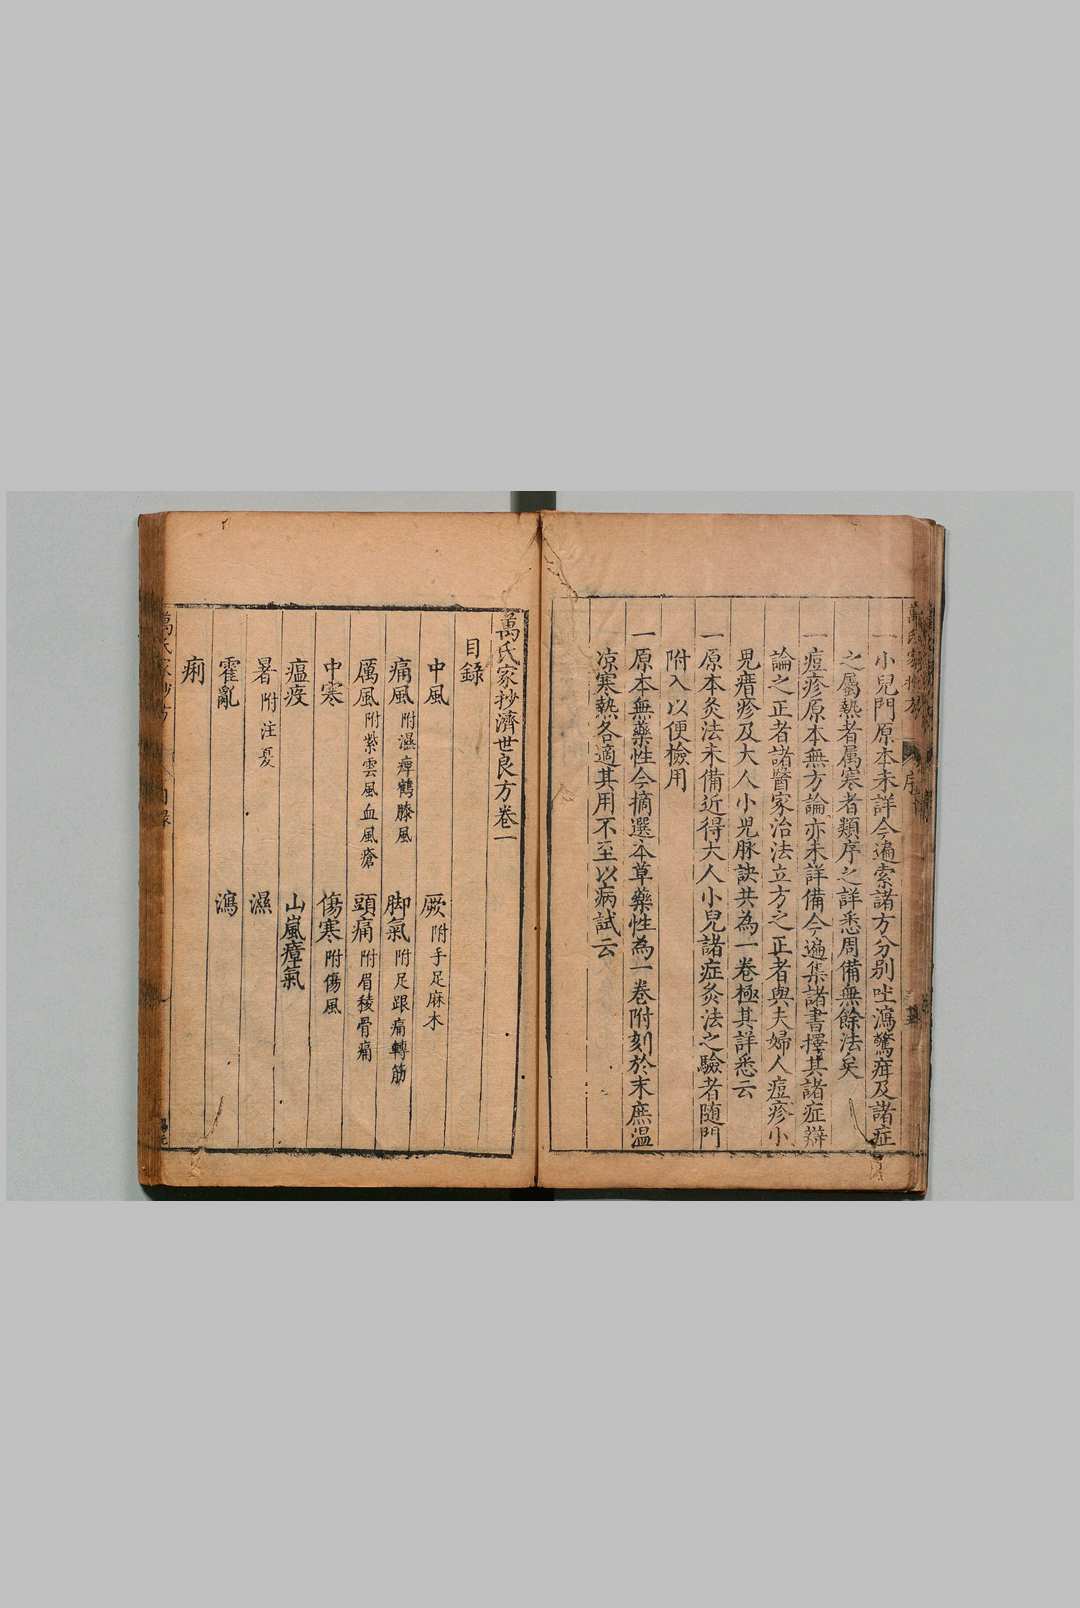 一小兒門原本未詳今遍索諸方分别吐瀉驚疳及諸症
之屬熱者属寒者類序之詳悉周備無餘法矣
一痘疹原本無方論亦未詳備今遍集諸書擇其諸症辯
論之正者諸醫家治法立方之正者與夫婦人痘疹小
兒瘄疹及大人小兒脉訣共為一卷極其詳悉云
一原本灸法未備近得大人小兒諸症灸法之驗者随門
附入以便檢用
一原本無藥性今摘選本草藥性為一卷附刻於末庶温
凉寒熱各適其用不至以病試云
萬氏家抄濟世良方卷一
目錄
中風 厥附手足麻木
痛風附濕痺鶴膝風 脚氣附足跟痛轉筋
厲風附紫雲風血風瘡 頭痛附眉稜骨痛
中寒 傷寒附傷風
瘟疫 山嵐瘴氣
暑附注夏 濕
霍亂 瀉
痢
萬氏家抄方